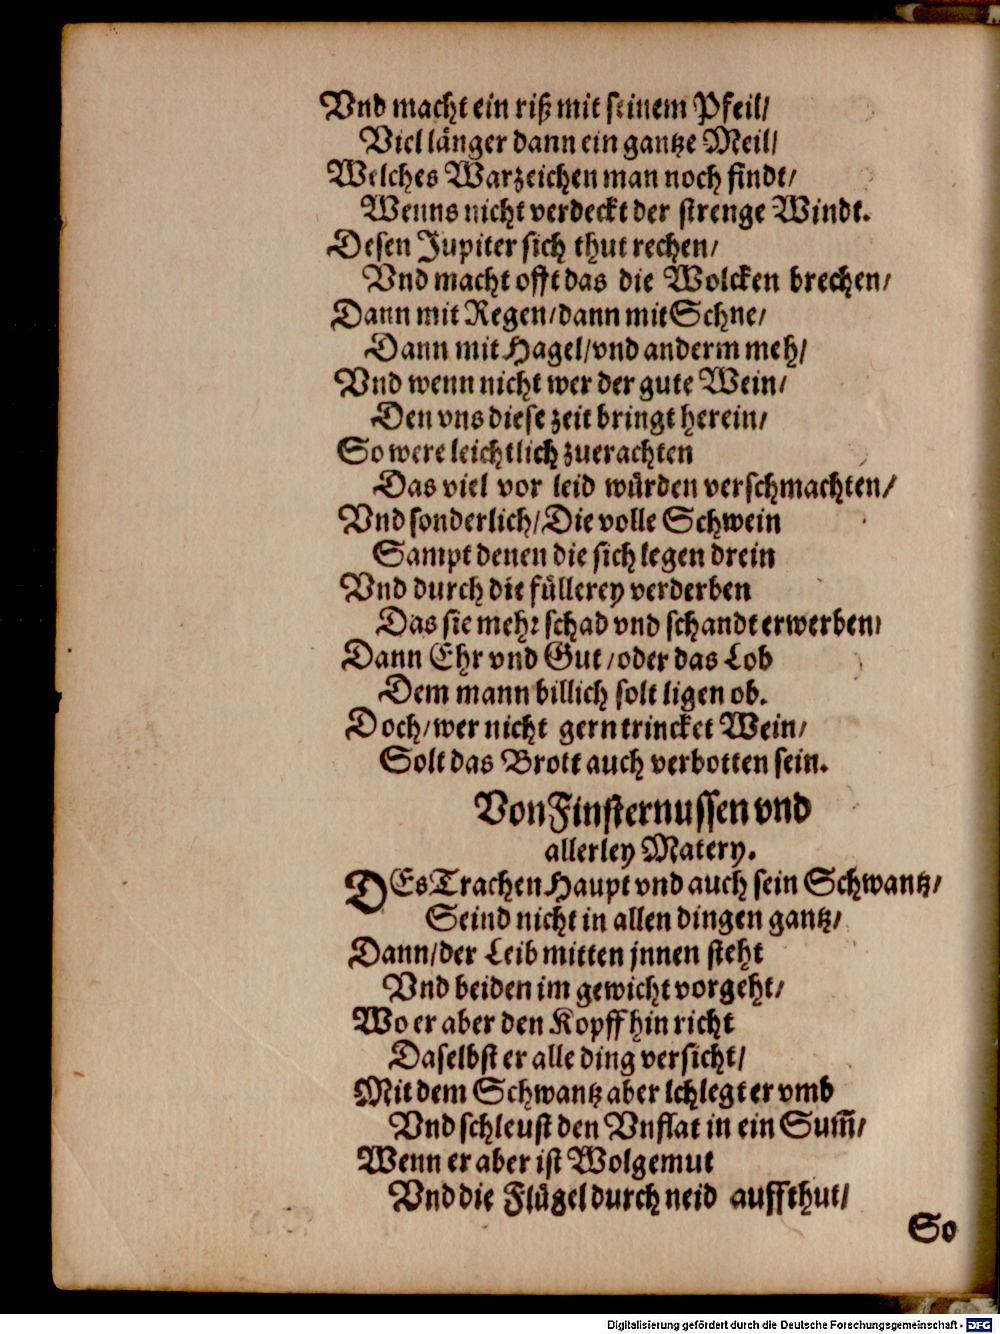 Vnd macht ein riß mit seinem Pfeil/
Viel länger dann ein gantze Meil/
Welches Warzeichen man noch findt/
Wenns nicht verdeckt der strenge Windt.
Desen Jupiter sich thut rechen/
Vnd macht offt das die Wolcken brechen/
Dann mit Regen/dann mit Schne/
Dann mit Hagel/vnd anderm meh/
Vnd wenn nicht wer der gute Wein/
Den vns diese zeit bringt herein/
So were leichtlich zuerachten
Das viel vor leid würden verschmachten/
Vnd sonderlich/Die volle Schwein
Sampt denen die sich legen drein
Vnd durch die füllerey verderben
Das sie mehr schad vnd schandt erwerben/
Dann Ehr vnd Gut/oder das Lob
Dem mann billich solt ligen ob.
Doch/wer nicht gern trincket Wein/
Solt das Brott auch verbotten sein.
Von Finsternussen vnd
allerley Matery.
DEs Trachen Haupt vnd auch sein Schwantz/
Seind nicht in allen dingen gantz/
Dann/der Leib mitten jnnen steht
Vnd beiden im gewicht vorgeht/
Wo er aber den Kopff hin richt
Daselbst er alle ding versicht/
Mit dem Schwantz aber lchlegt er vmb
Vnd schleust den Vnflat in ein Sum̅/
Wenn er aber ist Wolgemut
Vnd die Flügel durch neid auffthut/
So
Digitalisierung gefördert durch die Deutsche Forschungsgemeinschaft - DFG